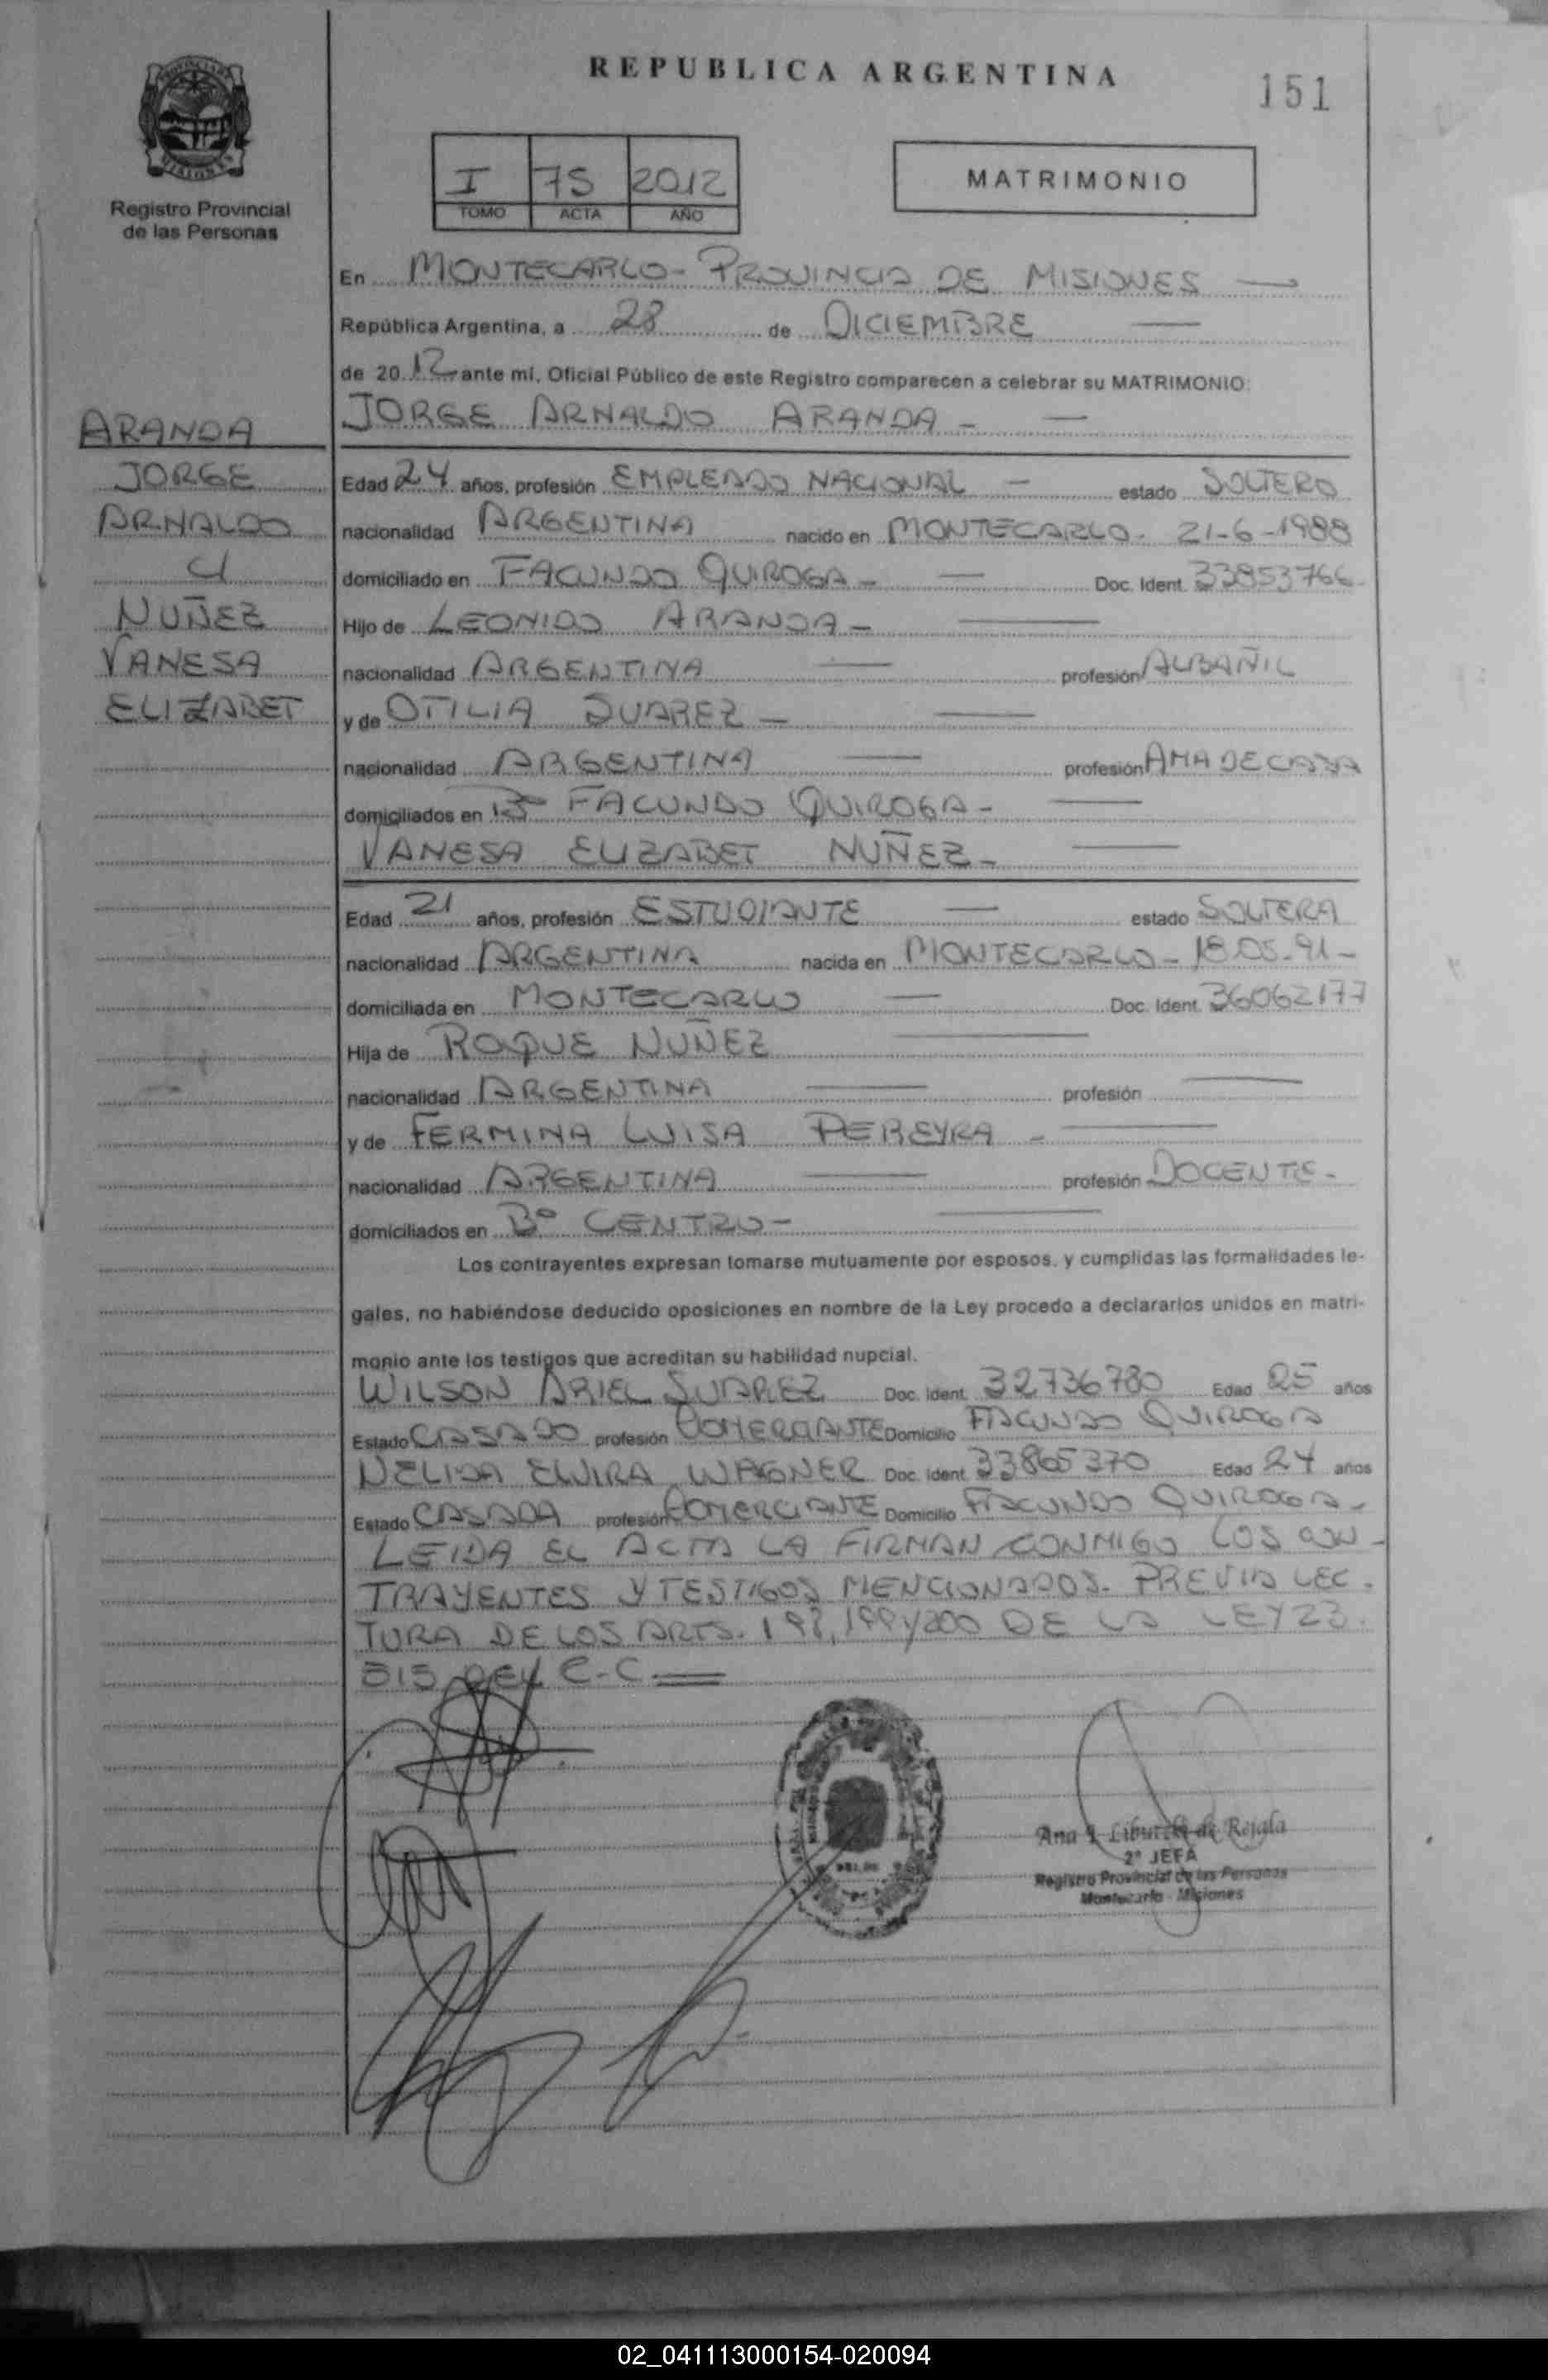 REPUBLICA ARGENTINA
151
I 75 2012
TOMO ACTA AÑO
MATRIMONIO
Registro Provincial
de las Personas
En MONTECARLO - PROVINCIA DE MISIONES
República Argentina, a 28 de DICIEMBRE
de 2012 ante mí, Oficial Público de este Registro comparecen a celebrar su MATRIMONIO:
JORGE ARNALDO ARANDA -
ARANDA
JORGE
ARNALDO
Y
NUÑEZ
VANESA
ELIZABET
Edad 24 años, profesión EMPLEADO NACIONAL - estado SOLTERO
nacionalidad ARGENTINA nacido en MONTECARLO - 21-6-1988
domiciliado en FACUNDO QUIROGA - Doc. Ident. 33853766
Hijo de LEONIDO ARANDA -
nacionalidad ARGENTINA profesión ALBAÑIL
y de OTILIA SUAREZ -
nacionalidad ARGENTINA profesión AMA DE CASA
domiciliados en Bº FACUNDO QUIROGA -
VANESA ELIZABET NUÑEZ -
Edad 21 años, profesión ESTUDIANTE - estado SOLTERA
nacionalidad ARGENTINA nacida en MONTECARLO - 18.05.91 -
domiciliada en MONTECARLO Doc. Ident. 36062177
Hija de ROQUE NUÑEZ
nacionalidad ARGENTINA profesión
y de FERMINA LUISA PEREYRA -
nacionalidad ARGENTINA profesión DOCENTE -
domiciliados en Bº CENTRO -
Los contrayentes expresan tomarse mutuamente por esposos, y cumplidas las formalidades le-
gales, no habiéndose deducido oposiciones en nombre de la Ley procedo a declararlos unidos en matri-
monio ante los testigos que acreditan su habilidad nupcial.
WILSON ARIEL SUAREZ Doc. Ident. 32736780 Edad 25 años
Estado CASADO profesión COMERCIANTE Domicilio FACUNDO QUIROGA
NELIDA ELVIRA WAGNER Doc. Ident. 33865370 Edad 24 años
Estado CASADA profesión COMERCIANTE Domicilio FACUNDO QUIROGA -
LEIDA EL ACTA LA FIRMAN CONMIGO LOS CON-
TRAYENTES Y TESTIGOS MENCIONADOS. PREVIA LEC-
TURA DE LOS ARTS. 198, 199 y 200 DE LA LEY 23.
515 DEL C.C.
Ana de Rejala
2º JEFA
Registro Provincial de las Personas
Montecarlo - Misiones
02_041113000154-020094